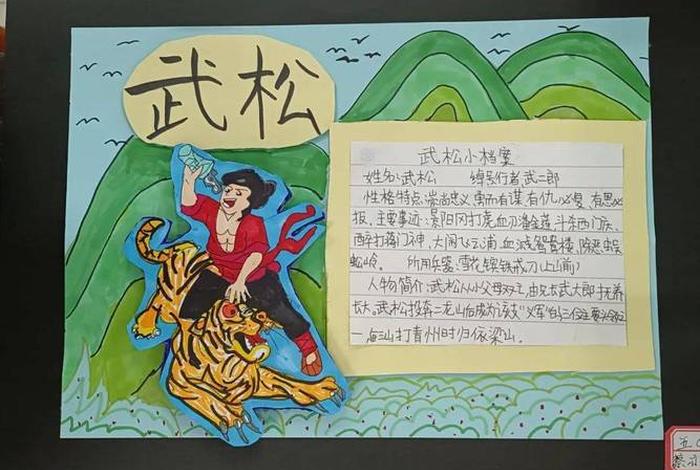 武松
武松小档案
姓名:武松 绰号行者 武二郎
性格特点:崇尚忠义 勇而有谋 有仇必复 有恩必
报。主要事迹:景阳冈打虎 血刃潘金莲 斗杀西门庆、
醉打蒋门神、大闹飞云浦 血溅鸳鸯楼、除恶蜈
蚣岭。 所用兵器:雪花镔铁戒刀(上山前)
人物简介:武松从小父母双亡,由兄长武大郎抚养
长大。武松投奔二龙山后成为该支"义军"的三位主要头领之
一,三山打青州时归依梁山。
五
蔡